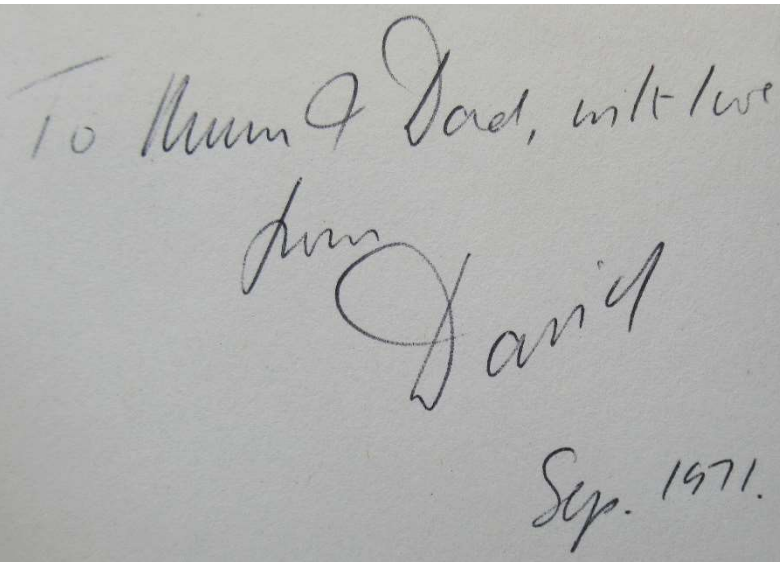 To Mum & Dad, with love
from
David
Sep. 1971.